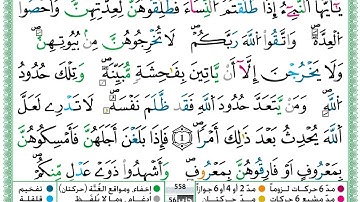 يَٰٓأَيُّهَا ٱلنَّبِيُّ إِذَا طَلَّقْتُمُ ٱلنِّسَآءَ فَطَلِّقُوهُنَّ لِعِدَّتِهِنَّ وَأَحْصُوا۟
ٱلْعِدَّةَ ۖ وَٱتَّقُوا۟ ٱللَّهَ رَبَّكُمْ ۖ لَا تُخْرِجُوهُنَّ مِنۢ بُيُوتِهِنَّ
وَلَا يَخْرُجْنَ إِلَّآ أَن يَأْتِينَ بِفَٰحِشَةٍ مُّبَيِّنَةٍ ۚ وَتِلْكَ حُدُودُ
ٱللَّهِ ۚ وَمَن يَتَعَدَّ حُدُودَ ٱللَّهِ فَقَدْ ظَلَمَ نَفْسَهُۥ ۚ لَا تَدْرِى لَعَلَّ
ٱللَّهَ يُحْدِثُ بَعْدَ ذَٰلِكَ أَمْرًا ۝١ فَإِذَا بَلَغْنَ أَجَلَهُنَّ فَأَمْسِكُوهُنَّ
بِمَعْرُوفٍ أَوْ فَارِقُوهُنَّ بِمَعْرُوفٍ وَأَشْهِدُوا۟ ذَوَىْ عَدْلٍ مِّنكُمْ
مدّ 6 حركات لزوماً مدّ 2 أو 4 أو 6 جوازاً 558 إخفاء، ومواقع الغُنَّة (حركتان) تفخيم
مدّ مشبع 6 حركات مدّ حركتان إدغام، وما لا يُلفظ قلقلة